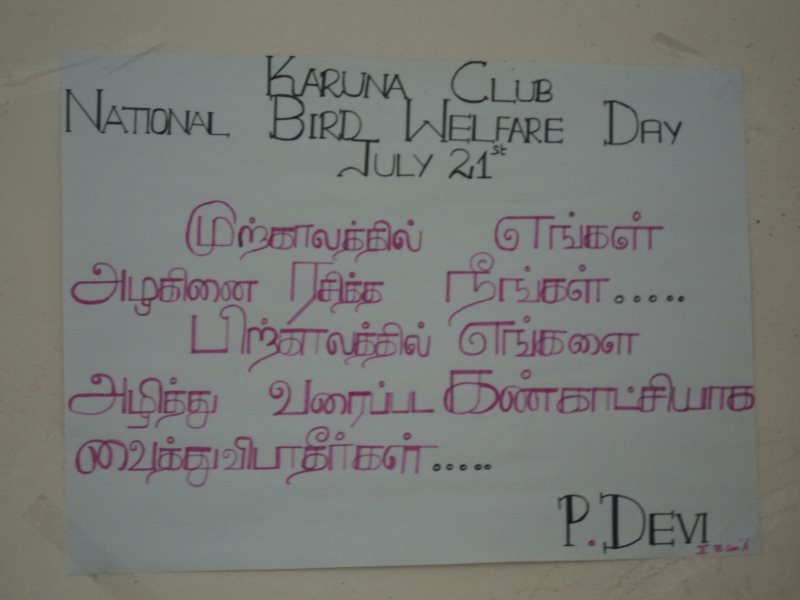 KARUNA CLUB
NATIONAL BIRD WELFARE DAY
JULY 21st
முற்காலத்தில் எங்கள்
அழகினை ரசித்த நீங்கள்.....
பிற்காலத்தில் எங்களை
அழித்து வரைப்பட கண்காட்சியாக
வைத்துவிபாதீர்கள்.....
P. DEVI